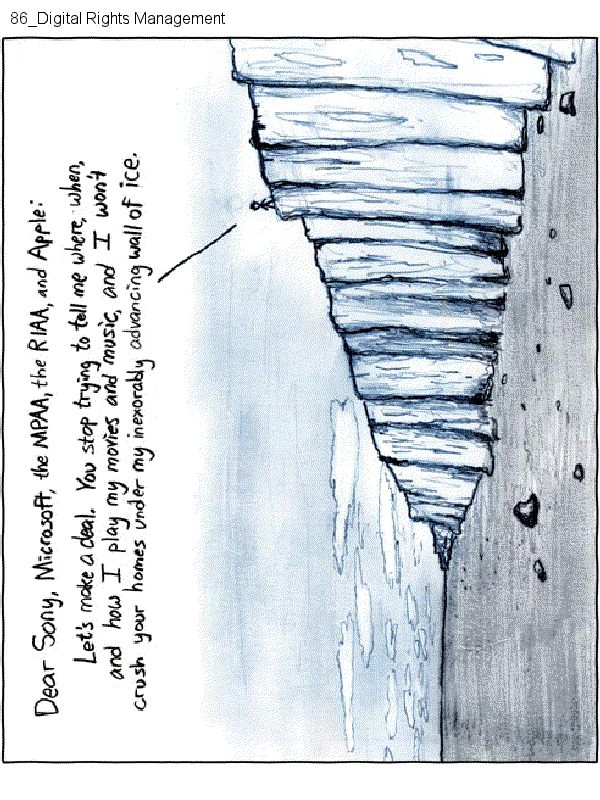 86_Digital Rights Management
Dear Sony, Microsoft, the MPAA, the RIAA, and Apple:
Let's make a deal. You stop trying to tell me where, when,
and how I play my movies and music, and I won't
crush your homes under my inexorably advancing wall of ice.